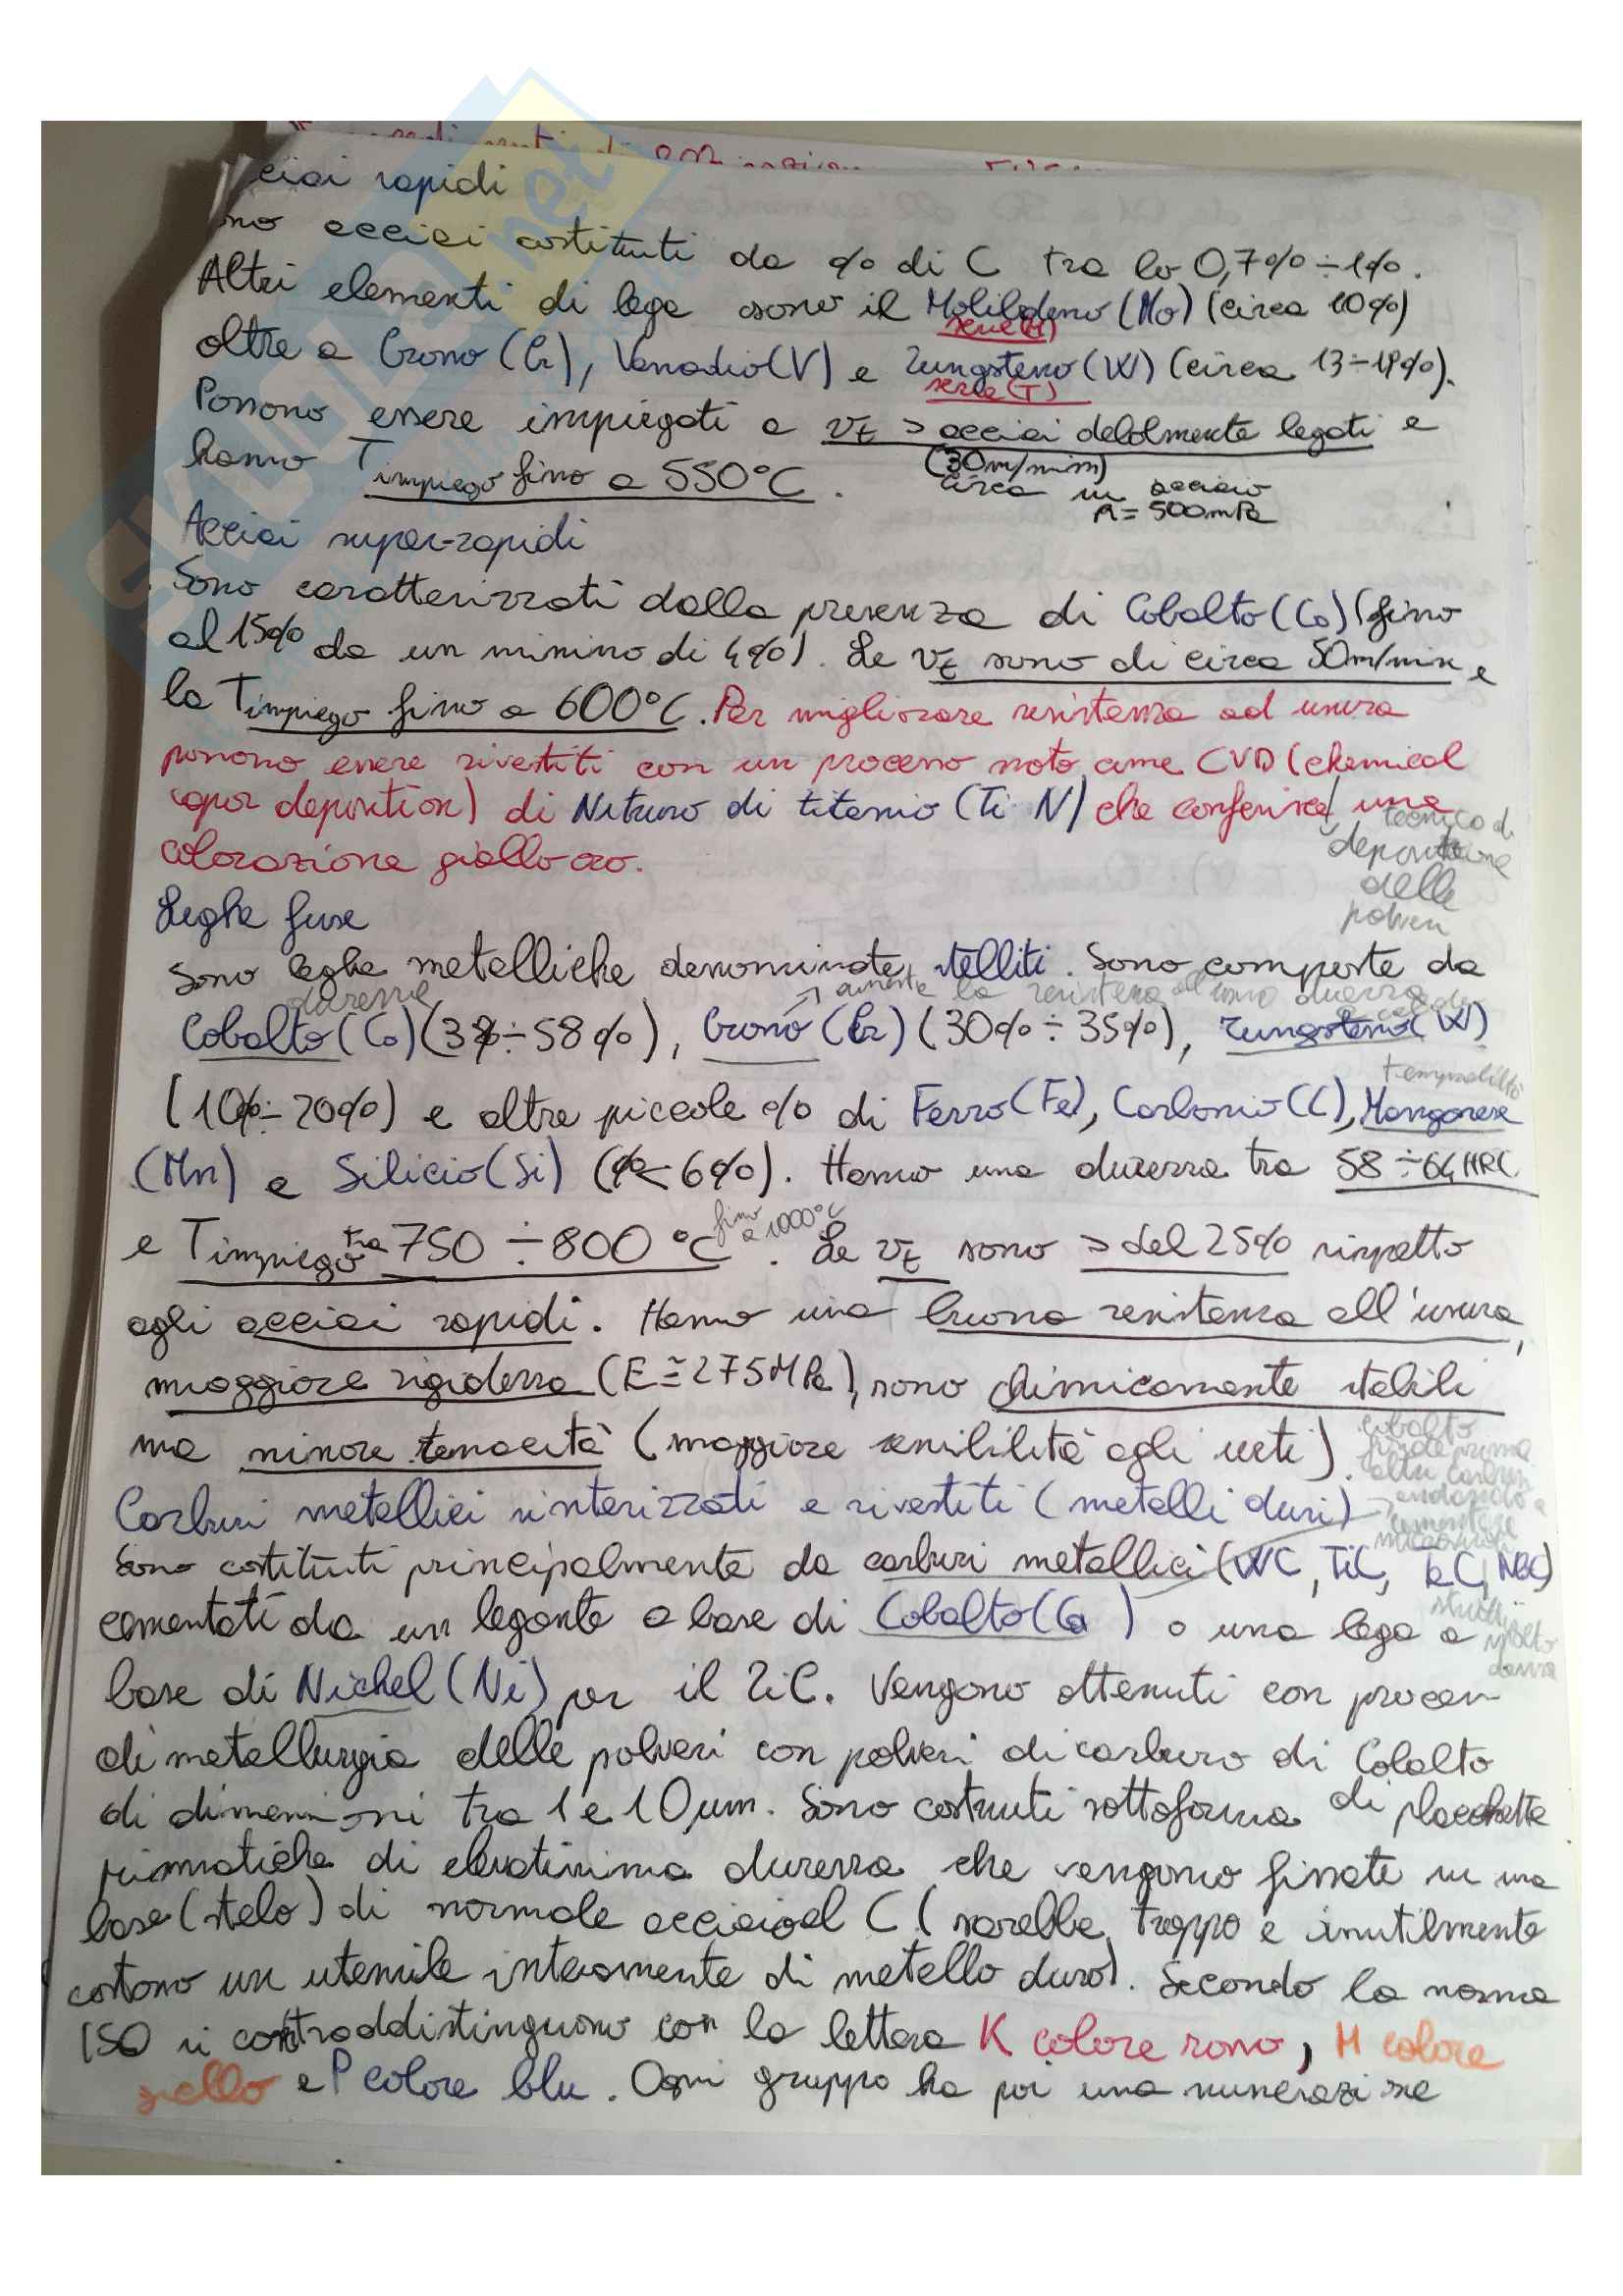 ciai rapidi
ono acciai costituiti da % di C tra lo 0,7% ÷ 1%.
Altri elementi di lega sono il Molibdeno (Mo) (circa 10%)
serie (M)
oltre a Cromo (Cr), Vanadio (V) e Tungsteno (W) (circa 13÷19%).
serie (T)
Possono essere impiegati a vt > acciai debolmente legati e
hanno Timpiego fino a 550°C.
(30m/min)
circa in acciaio
R = 500mPa
Acciai super-rapidi
Sono caratterizzati dalla presenza di Cobalto (Co) (fino
al 15% da un minimo di 4%). Le vt sono di circa 50m/min e
la Timpiego fino a 600°C. Per migliorare resistenza ad usura
possono essere rivestiti con un processo noto come CVD (chemical
vapor deposition) di Nitruro di titanio (Ti N) che conferisce una
colorazione giallo oro.
tecnica di
deposizione
delle
polveri
Leghe fuse
Sono leghe metalliche denominate stelliti. Sono composte da
durezza
aumenta la resistenza all'usura durezza
Cobalto (Co) (38÷58%), Cromo (Cr) (30%÷35%), Tungsteno (W)
temprabilità
(10%÷20%) e altre piccole % di Ferro (Fe), Carbonio (C), Manganese
(Mn) e Silicio (Si) (%<6%). Hanno una durezza tra 58÷64 HRC
e Timpiego tra 750÷800 °C fino a 1000°C. Le vt sono > del 25% rispetto
agli acciai rapidi. Hanno una buona resistenza all'usura,
maggiore rigidezza (E≅275MPa), sono chimicamente stabili
ma minore tenacità (maggiore sensibilità agli urti).
cobalto
fonde prima
altri carburi
andando a
cementare
Carburi metallici sinterizzati e rivestiti (metalli duri)
Sono costituiti principalmente da carburi metallici (WC, TiC, TaC, NbC)
cementati da un legante a base di Cobalto (Co) o una lega a
base di Nichel (Ni) per il TiC. Vengono ottenuti con processi
di metallurgia delle polveri con polveri di carburo di Cobalto
di dimensioni tra 1 e 10 µm. Sono costruiti sottoforma di placchette
prismatiche di elevatissima durezza che vengono fissate su una
base (stelo) di normale acciaio al C (sarebbe troppo e inutilmente
costoso un utensile interamente di metallo duro). Secondo la norma
ISO si contraddistinguono con la lettera K colore rosso, M colore
giallo e P colore blu. Ogni gruppo ha poi una numerazione